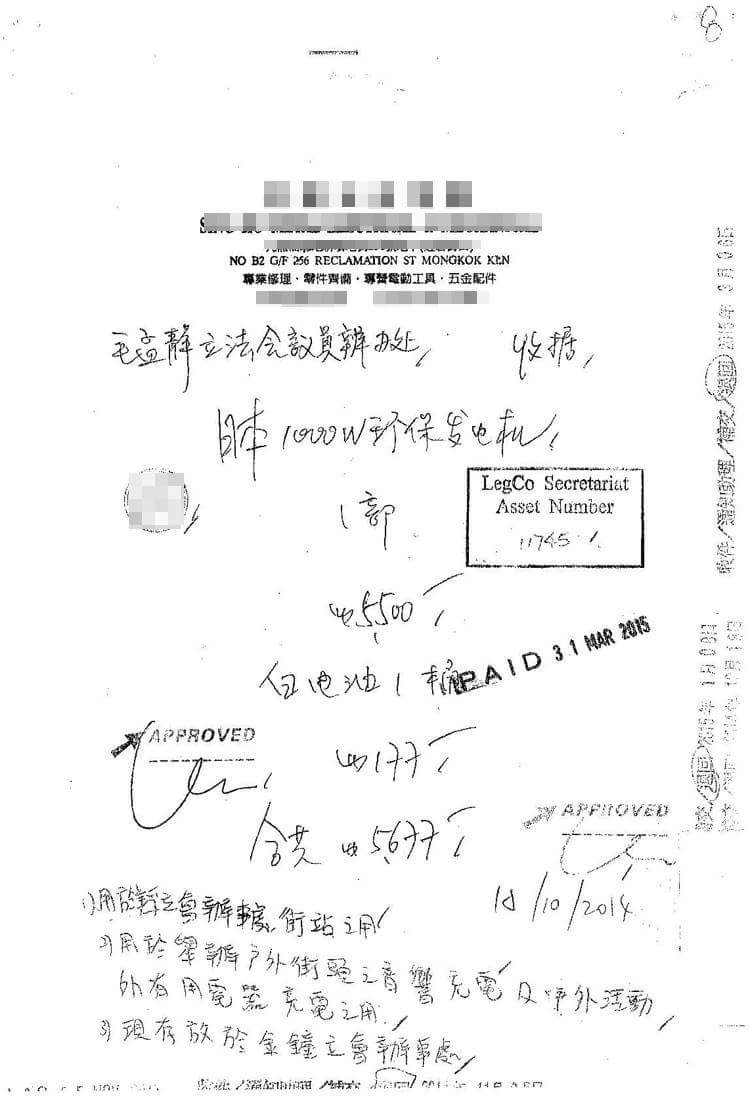 8
NO B2 G/F 256 RECLAMATION ST MONGKOK KLN
專業修理．零件齊備．專營電動工具．五金配件
毛孟靜立法会議員辦办处 收据
日本1000W环保发电机
1部
LegCo Secretariat
Asset Number
11745
$5,500
白电油1桶
PAID 31 MAR 2015
APPROVED
$177
合共 $5,677
APPROVED
18/10/2014
1)用於立會辦事處、街站之用
2)用於舉辦戶外街頭之音響充電及戶外活動
所有用電器充電之用
3)現存放於金鐘立會辦事處
收件／通知助理／補交／退回 2015年3月06日
補交／退回 2015年1月08日